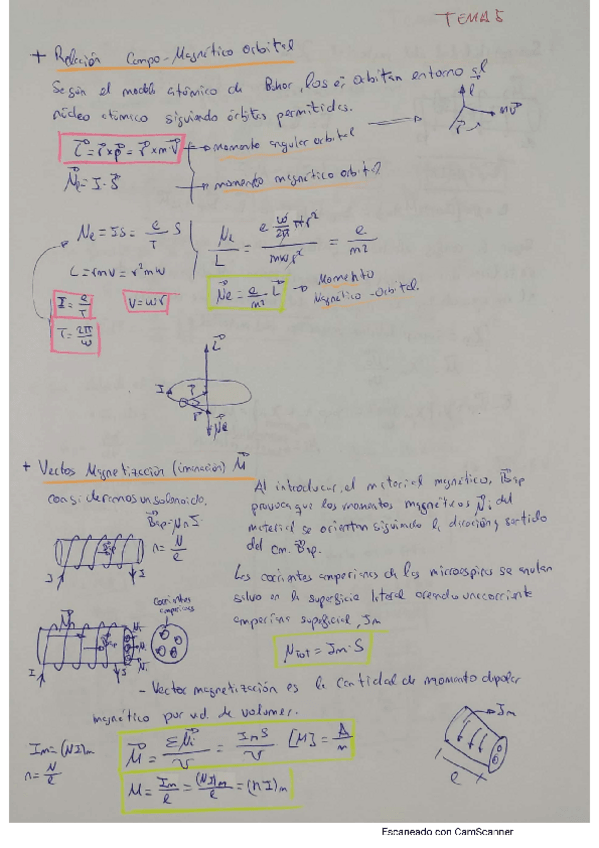 TEMA 5
+ Relación Campo-Magnético orbital
Según el modelo atómico de Bohor, los e⁻, orbitan entorno al
núcleo atómico siguiendo órbitas permitidas.
L
m v⃗
r⃗
l⃗ = r⃗ x p⃗ = r⃗ x m·v⃗ → momento angular orbital
μ⃗e = I · S⃗ → momento magnético orbital
μe = IS = e/T S
L = rmv = r²mw
μe/L = (e w/2π π r²)/(m w r²) = e/m2
I = e/T
V = wr
T = 2π/w
μ⃗e = e/m2 · L⃗ → Momento
Magnético-orbital.
L⃗
I
r⃗
μ⃗e
+ Vector Magnetización (imanación) M⃗
consideramos un solenoide.
Bap = μ n I
n = N/l
Bap
I
I
Al introducir, el material magnético, B⃗ap
provoca que los momentos magnéticos μ⃗i del
material se orientan siguiendo la dirección y sentido
del cm. B⃗ap.
Las corrientes amperianas de las microespiras se anulan
salvo en la superficie lateral creando una corriente
amperiana superficial, Im
μtot = Im · S
Corrientes
amperianas
I
I
- Vector magnetización es la cantidad de momento dipolar
magnético por ud. de volumen.
Im = (NI)m
n = N/l
M⃗ = Σμ⃗i/V = Im S/V [M] = A/m
M = Im/l = (NI)m/l = (nI)m
Im
l
Escaneado con CamScanner